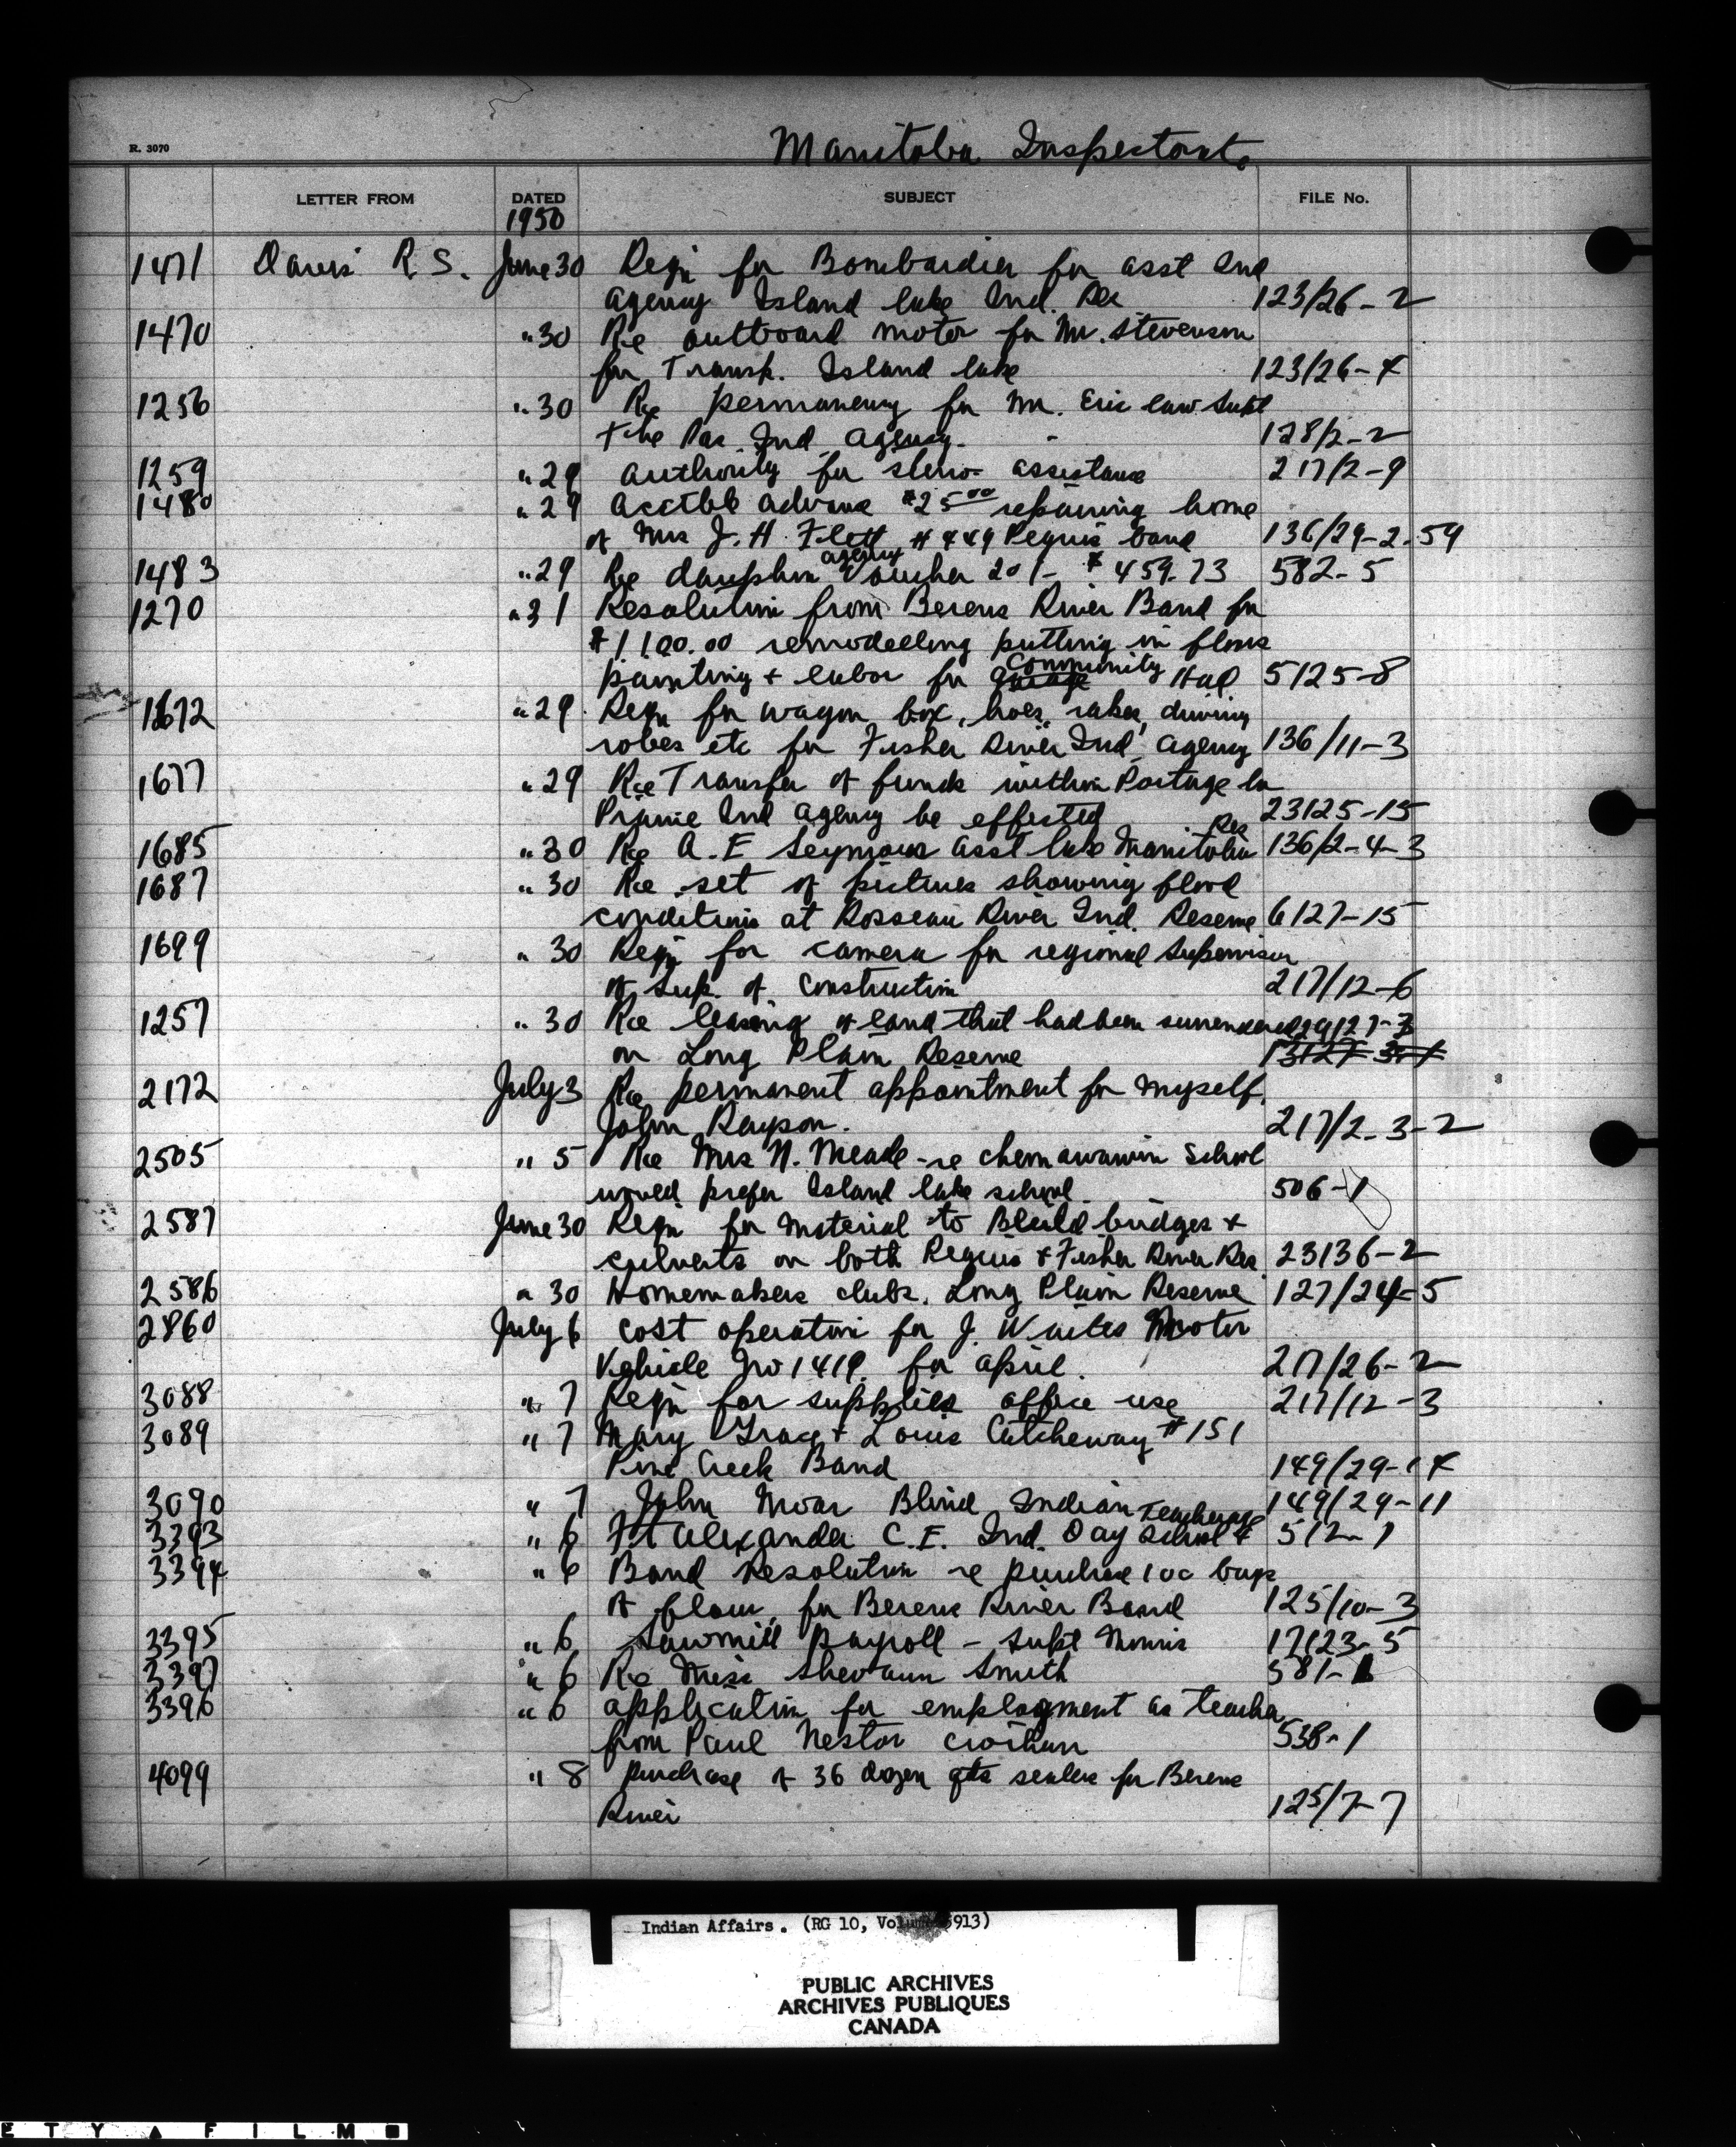 R. 3070
Manitoba Inspectorate
LETTER FROM DATED SUBJECT FILE No.
1950
1471 Davis R. S. June 30 Reqn for Bombardier for asst Ind
Agency Island lake Ind. Res 123/26-2
1470 " 30 Re outboard motor for Mr. Stevenson
for Transp. Island lake 123/26-4
1256 " 30 Re permanency for Mr. Eric Law Supt
The Pas Ind Agency. 128/2-2
1259 " 29 Authority for steno assistance 217/2-9
1480 " 29 Acctble advance $25.00 repairing home
of Mrs J. H. Flett #449 Peguis band 136/29-2-59
1483 " 29 Re dauphin agency Voucher 201- $459.73 582-5
1270 " 31 Resolution from Berens River Band for
$1100.00 remodelling putting in floors
painting + labor for garage Community Hall 5125-8
1672 " 29 Reqn for wagon box, hoes, rakes, driving
robes etc for Fisher River Ind Agency 136/11-3
1677 " 29 Re Transfer of funds within Portage la
Prairie Ind Agency be effected 23125-15
1685 " 30 Re A. E Seymour asst lake Manitoba Res 136/2-4-3
1687 " 30 Re set of pictures showing flood
conditions at Rosseau River Ind. Reserve 6127-15
1699 " 30 Reqn for camera for regional Supervisor
of Sup. of Construction 217/12-6
1257 " 30 Re leasing of land that had been surrendered 29127-3
on Long Plain Reserve
2172 July 3 Re permanent appointment for myself.
John Rayson. 217/2-3-2
2505 " 5 Re Mrs N. Meade - re chemawawin School
would prefer Island lake school. 506-1
2587 June 30 Reqn for Material to Build bridges +
culverts on both Peguis + Fisher River Res 23136-2
2586 " 30 Homemakers clubs. Long Plain Reserve 127/24-5
2860 July 6 Cost operation for J. Waites Motor
Vehicle No 1419. for April. 217/26-2
3088 " 7 Reqn for supplies office use 217/12-3
3089 " 7 Mary Grace + Louis Cutcheway #151
Pine Creek Band 149/29-14
3090 " 7 John Moar Blind Indian 149/29-11
3393 " 6 Ft Alexander C.E. Ind. Day School + Teacherage 512-1
3394 " 6 Band Resolution re purchase 100 bags
of flour for Berens River Band 125/10-3
3395 " 6 Sawmill Payroll - Supt Morris 17123-5
3397 " 6 Re Miss Smith 581-1
3396 " 6 application for employment as teacher
from Paul Nestor 538-1
4099 " 8 purchase of 36 dozen qts sealers for Berens
River 125/7-7
Indian Affairs. (RG 10, Volume 913)
PUBLIC ARCHIVES
ARCHIVES PUBLIQUES
CANADA
E T Y ▲ F I L M ■